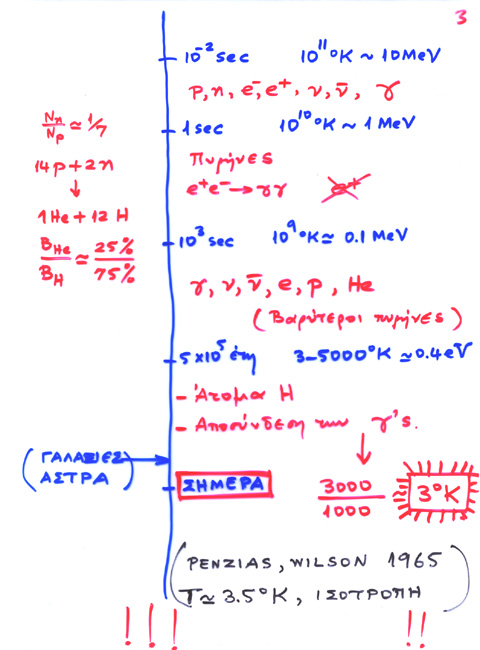 3
10⁻² sec 10¹¹ °K ~ 10 MeV
p, n, e⁻, e⁺, ν, ν̄, γ
Nn/Np ≃ 1/7
1 sec 10¹⁰ °K ~ 1 MeV
14 p + 2 n
↓
1 He + 12 H
Πυρήνες
e⁺e⁻ → γγ e⁺
B_He/B_H ≃ 25%/75%
10³ sec 10⁹ °K ≃ 0.1 MeV
γ, ν, ν̄, e, p, He
(Βαρύτεροι πυρήνες)
5×10⁵ έτη 3–5000 °K ≃ 0.4 eV
- Άτομα Η
- Αποσύνδεση των γ's.
(ΓΑΛΑΞΙΕΣ
ΑΣΤΡΑ)
ΣΗΜΕΡΑ
3000/1000 ≃ 3°K
(PENZIAS, WILSON 1965
T ≃ 3.5°K, ΙΣΟΤΡΟΠΗ)
!!! !!